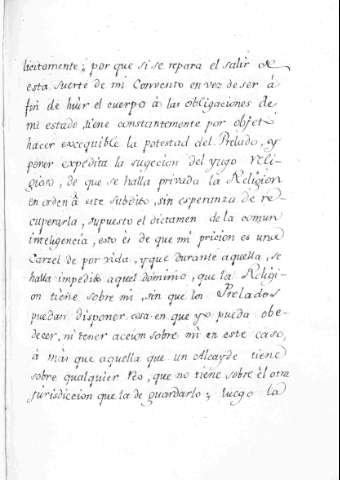 licitamente; por que si se repara el salir de
esta suerte de mi Convento en vez de ser á
fin de húir el cuerpo á las obligaciones de
mi estado, tiene constantemente por objeto
hacer excequible la potestad del Prelado, y
poner expedita la sugecion del yugo Reli-
gioso, de que se halla privada la Religion
en orden â este Subdito, sin esperanza de re-
cuperarla, supuesto el dictamen de la comun
inteligencia, esto es de que mi pricion es una
Carzel de por vida, y que durante aquella, se
halla impedido aquel dominio, que la Religi-
on tiene sobre mi, sin que los Prelados
puedan disponer cosa en que yo pueda obe-
decer, ni tener accion sobre mi en este caso,
á más que aquella que un Alcayde tiene
sobre qualquier Reo, que no tiene sobre él otra
jurisdiccion que la de guardarlo; luego la